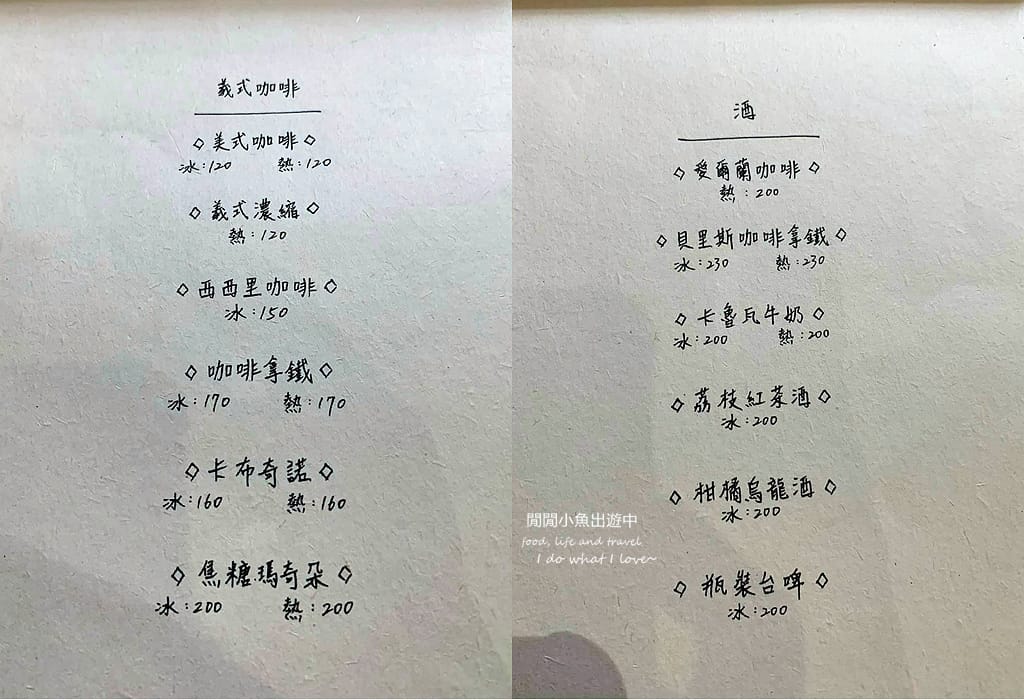 義式咖啡
◇美式咖啡◇
冰:120 熱:120
◇義式濃縮◇
熱:120
◇西西里咖啡◇
冰:150
◇咖啡拿鐵◇
冰:170 熱:170
◇卡布奇諾◇
冰:160 熱:160
◇焦糖瑪奇朵◇
冰:200 熱:200
酒
◇愛爾蘭咖啡◇
熱:200
◇貝里斯咖啡拿鐵◇
冰:230 熱:230
◇卡魯瓦牛奶◇
冰:200 熱:200
◇荔枝紅茶酒◇
冰:200
◇柑橘烏龍酒◇
冰:200
◇瓶裝台啤◇
冰:200
閒閒小魚出遊中
food, life and travel
I do what I love~